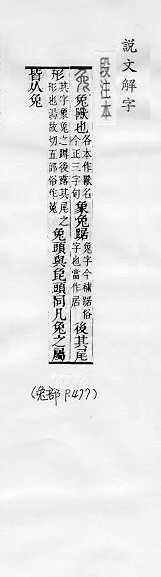 說文解字
段注本
兔 兔獸也各本作獸名今正三字句象兔踞兔字今補踞俗字也當作居後其尾
形其字象兔之蹲後露其尾之形也湯故切五部俗作菟兔頭與㲋頭同凡兔之屬
皆从兔
(兔部 P.477)